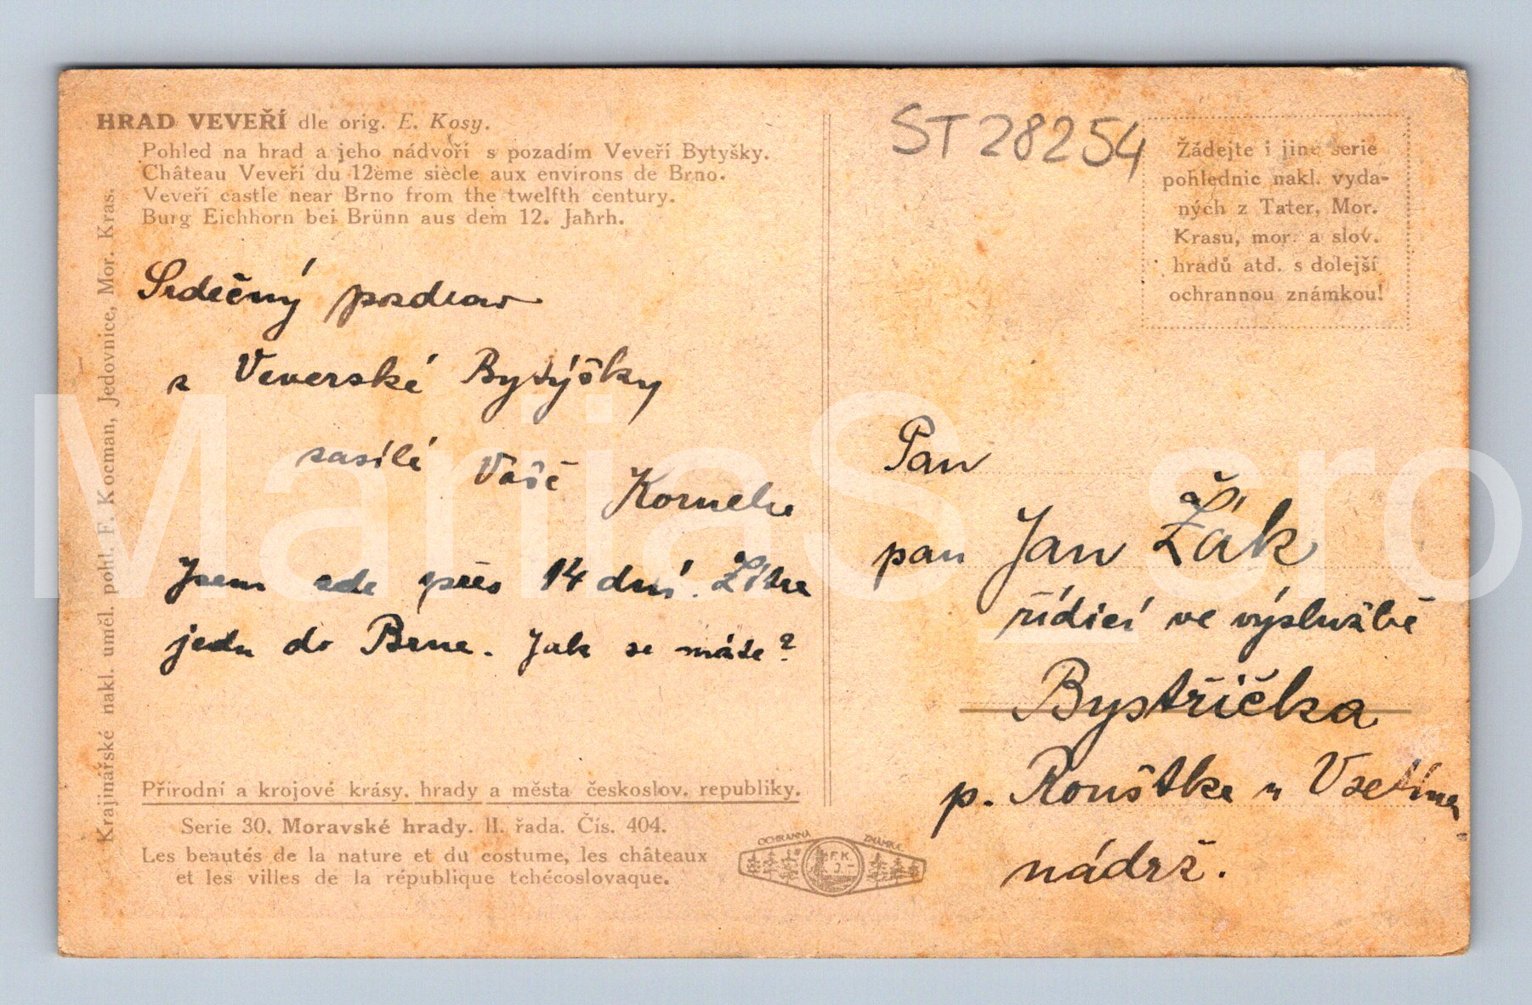 HRAD VEVEŘÍ dle orig. E. Kosy.
Pohled na hrad a jeho nádvoří s pozadím Veveří Bytyšky.
Château Veveří du 12ème siècle aux environs de Brno.
Veveří castle near Brno from the twelfth century.
Burg Eichhorn bei Brünn aus dem 12. Jahrh.
Srdečný pozdrav
z Veverské Bytýšky
zasílá Vaše Kornelie
Jsem zde přes 14 dní. Zítra
jedu do Brna. Jak se máte?
Přírodní a krojové krásy, hrady a města českoslov. republiky.
Serie 30. Moravské hrady. II. řada. Čís. 404.
Les beautés de la nature et du costume, les châteaux
et les villes de la république tchécoslovaque.
Krajinářské nakl. uměl. pohl. F. Kocman, Jedovnice, Mor. Kras.
OCHRANNÁ ZNÁMKA
F. K.
J.
ST28254
Žádejte i jiné serie
pohlednic nakl. vyda-
ných z Tater, Mor.
Krasu, mor. a slov.
hradů atd. s dolejší
ochrannou známkou!
Pan
pan Jan Žák
řídící ve výslužbě
Bystřička
p. Rouštka u Vsetína
nádrž.
MariiaS_sro